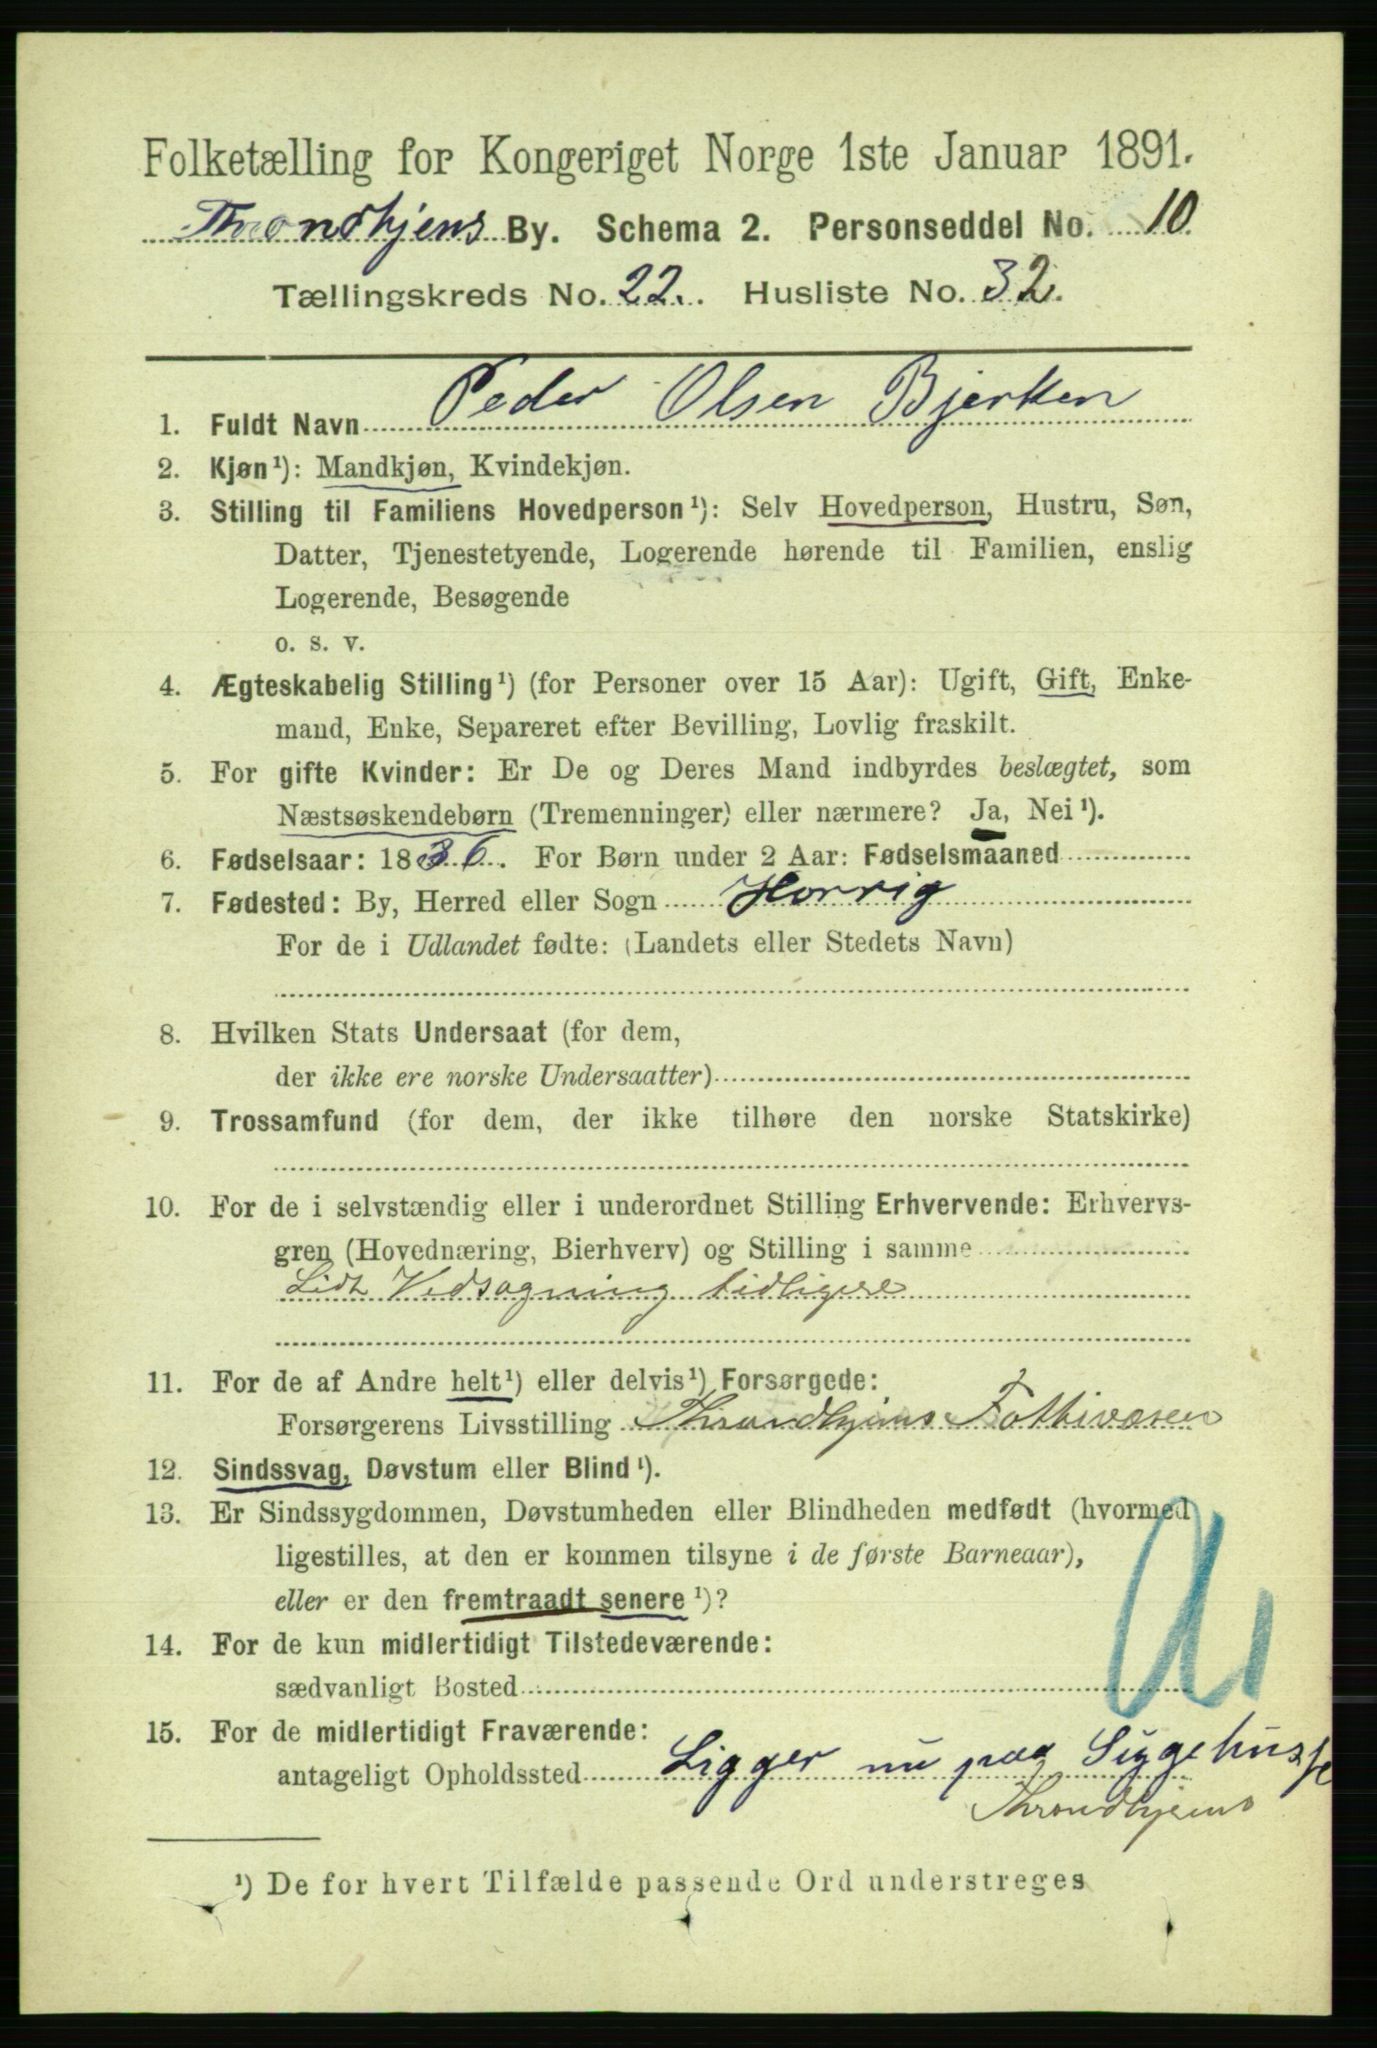 Folketælling for Kongeriget Norge 1ste Januar 1891.
Throndhjems By. Schema 2. Personseddel No. 10
Tællingskreds No. 22. Husliste No. 32.
1. Fuldt Navn Peder Olsen Bjerken
2. Kjøn¹): Mandkjøn, Kvindekjøn.
3. Stilling til Familiens Hovedperson¹): Selv Hovedperson, Hustru, Søn,
Datter, Tjenestetyende, Logerende hørende til Familien, enslig
Logerende, Besøgende
o. s. v.
4. Ægteskabelig Stilling¹) (for Personer over 15 Aar): Ugift, Gift, Enke-
mand, Enke, Separeret efter Bevilling, Lovlig fraskilt.
5. For gifte Kvinder: Er De og Deres Mand indbyrdes beslægtet, som
Næstsøskendebørn (Tremenninger) eller nærmere? Ja, Nei¹).
6. Fødselsaar: 1836. For Børn under 2 Aar: Fødselsmaaned
7. Fødested: By, Herred eller Sogn Horrig
For de i Udlandet fødte: (Landets eller Stedets Navn)
8. Hvilken Stats Undersaat (for dem,
der ikke ere norske Undersaatter)
9. Trossamfund (for dem, der ikke tilhøre den norske Statskirke)
10. For de i selvstændig eller i underordnet Stilling Erhvervende: Erhvervs-
gren (Hovednæring, Bierhverv) og Stilling i samme
Lidt Vedsagning tidligere
11. For de af Andre helt¹) eller delvis¹) Forsørgede:
Forsørgerens Livsstilling Throndhjems Fattivæsen
12. Sindssvag, Døvstum eller Blind¹).
13. Er Sindssygdommen, Døvstumheden eller Blindheden medfødt (hvormed
ligestilles, at den er kommen tilsyne i de første Barneaar),
eller er den fremtraadt senere¹)?
14. For de kun midlertidigt Tilstedeværende:
sædvanligt Bosted
15. For de midlertidigt Fraværende:
antageligt Opholdssted Ligger nu paa Sygehusse
Throndhjems
¹) De for hvert Tilfælde passende Ord understreges